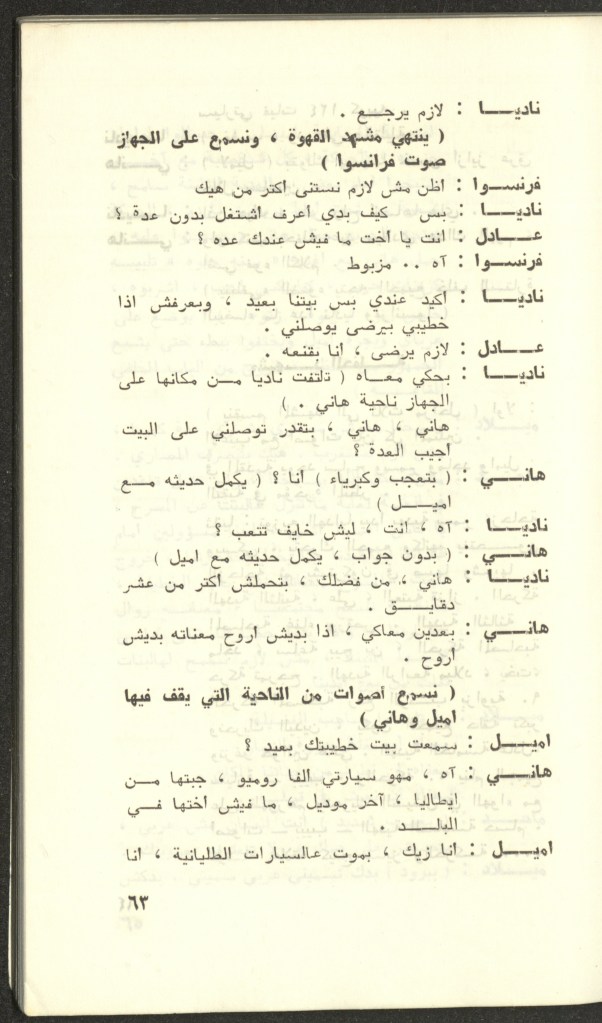 ناديـــا : لازم يرجـــع .
( ينتهي مشهد القهوة ، ونسمع على الجهاز
صوت فرانسوا )
فرنســوا : اظن مش لازم نستنى اكتر من هيك
ناديـــا : بس كيف بدي أعرف اشتغل بدون عدة ؟
عـــادل : انت يا اخت ما فيش عندك عده ؟
فرنســوا : آه .. مزبوط
ناديـــا : أكيد عندي بس بيتنا بعيد ، وبعرفش اذا
خطيبي بيرضى يوصلني .
عـــادل : لازم يرضى ، أنا بقنعه .
ناديـــا : بحكي معــاه ( تلتفت ناديا مــن مكانها على
الجهاز ناحية هاني . )
هاني ، هاني ، بتقدر توصلني على البيت
أجيب العدة ؟
هانـــي : ( بتعجب وكبرياء ) أنا ؟ ( يكمل حديثه مــع
اميـــل )
ناديـــا : آه ، أنت ، ليش خايف تتعب ؟
هانـــي : ( بدون جواب ، يكمل حديثه مع اميل )
ناديـــا : هاني ، من فضلك ، بتحملش أكتر من عشر
دقايـــق .
هانـــي : بعدين معاكي ، اذا بديش أروح معناته بديش
أروح .
( نسمع أصوات من الناحية التي يقف فيها
اميل وهاني )
اميـــل : سمعت بيت خطيبتك بعيد ؟
هانـــي : آه ، مهو سيارتي الفا روميو ، جبتها مــن
إيطاليا ، آخر موديل ، ما فيش أختها فــي
البلــد .
اميـــل : انا زيك ، بموت عالسيارات الطليانية ، انا
٦٣